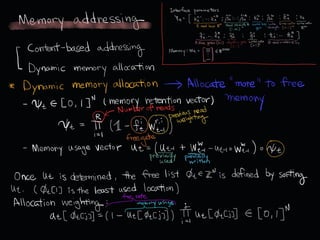 Memory addressing
Interface parameters :
Content-based addressing
Dynamic memory allocation
* Dynamic memory allocation → Allocate "more" to free memory
- ψt ∈ [0,1]^N (memory retention vector)
R Number of reads
ψt = ∏ i=1 (1 - f_t^i w_{t-1}^{r,i})
previous read weighting
free gate
- Memory usage vector u_t = (u_{t-1} + w_{t-1}^w - u_{t-1} ∘ w_{t-1}^w) ∘ ψt
previously used
previously written
Once u_t is determined, the free list φ_t ∈ Z^N is defined by sorting
u_t. (φ_t[1] is the least used location)
Allocation weighting :
a_t[φ_t[j]] = (1 - u_t[φ_t[j]]) ∏ i=1 u_t[φ_t[i]] ∈ [0,1]^N